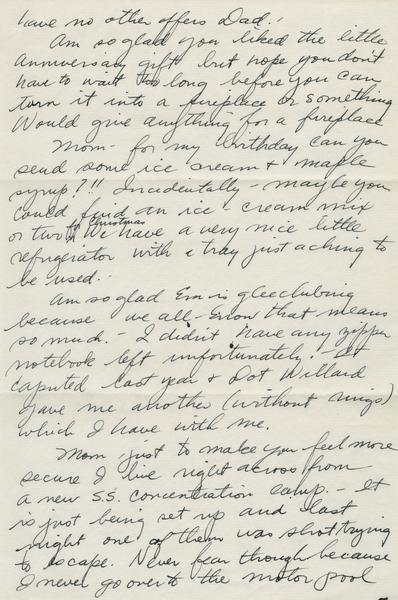 have no other offers Dad!
Am so glad you liked the little
anniversary gift but hope you don't
have to wait too long before you can
turn it into a fireplace or something
Would give anything for a fireplace
Mom - for my birthday can you
send some ice cream & maple
syrup?!! Incidentally - maybe you
could find an ice-cream mix
or two for Christmas We have a very nice little
refrigerator with a tray just aching to
be used.
Am so glad Em is gleeclubing
because we all know that means
so much. - I didn't have any zipper
notebook left unfortunately! - It
caputed last year & Dot Willard
gave me another (without rings)
which I have with me.
Mom, just to make you feel more
secure I live right across from
a new S.S. concentration camp. - It
is just being set up and last
night one of them was shot trying
to escape. Never fear though because
I never go over to the motor pool